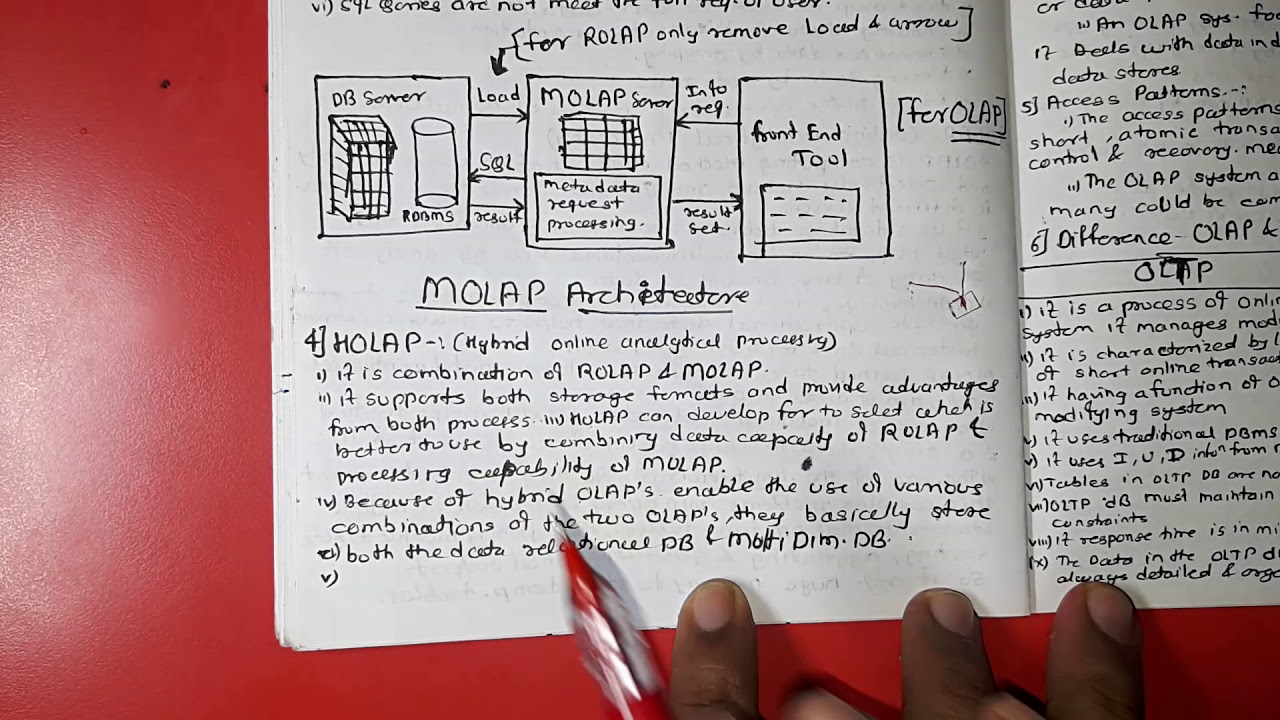 vi) SQL
[for ROLAP only remove Load & arrow]
DB Server
Load
MOLAP Server
Info req.
Front End
TOOL
[for OLAP]
SQL
RDBMS
result
metadata
request
processing.
result
set.
MOLAP Architecture
4] HOLAP -: (Hybrid online analytical processing)
i) it is combination of ROLAP & MOLAP.
ii) it supports both storage formats and provide advantages
from both process. iii) HOLAP can develop for to select which is
better to use by combining data capacity of ROLAP &
processing capability of MOLAP.
iv) Because of hybrid OLAP's enable the use of various
combinations of the two OLAP's, they basically store
both the data relational DB & Multi Dim. DB.
v)
ii) An OLAP sys.
it Deals with data in
data stores
5] Access Patterns -:
i) The access patterns
short, atomic
control & recovery.
ii) The OLAP system
many could be
6] Difference - OLAP &
OLTP
i) it is a process of
system it manages
ii) it is characterized by
of short online
iii) it having a function of
modifying system
v) it uses traditional DBMS
v) it uses I, U, D from
vi) Tables in OLTP DB are
vii) OLTP DB must maintain
constraints
viii) it response time is in
ix) The Data in the OLTP
always detailed &